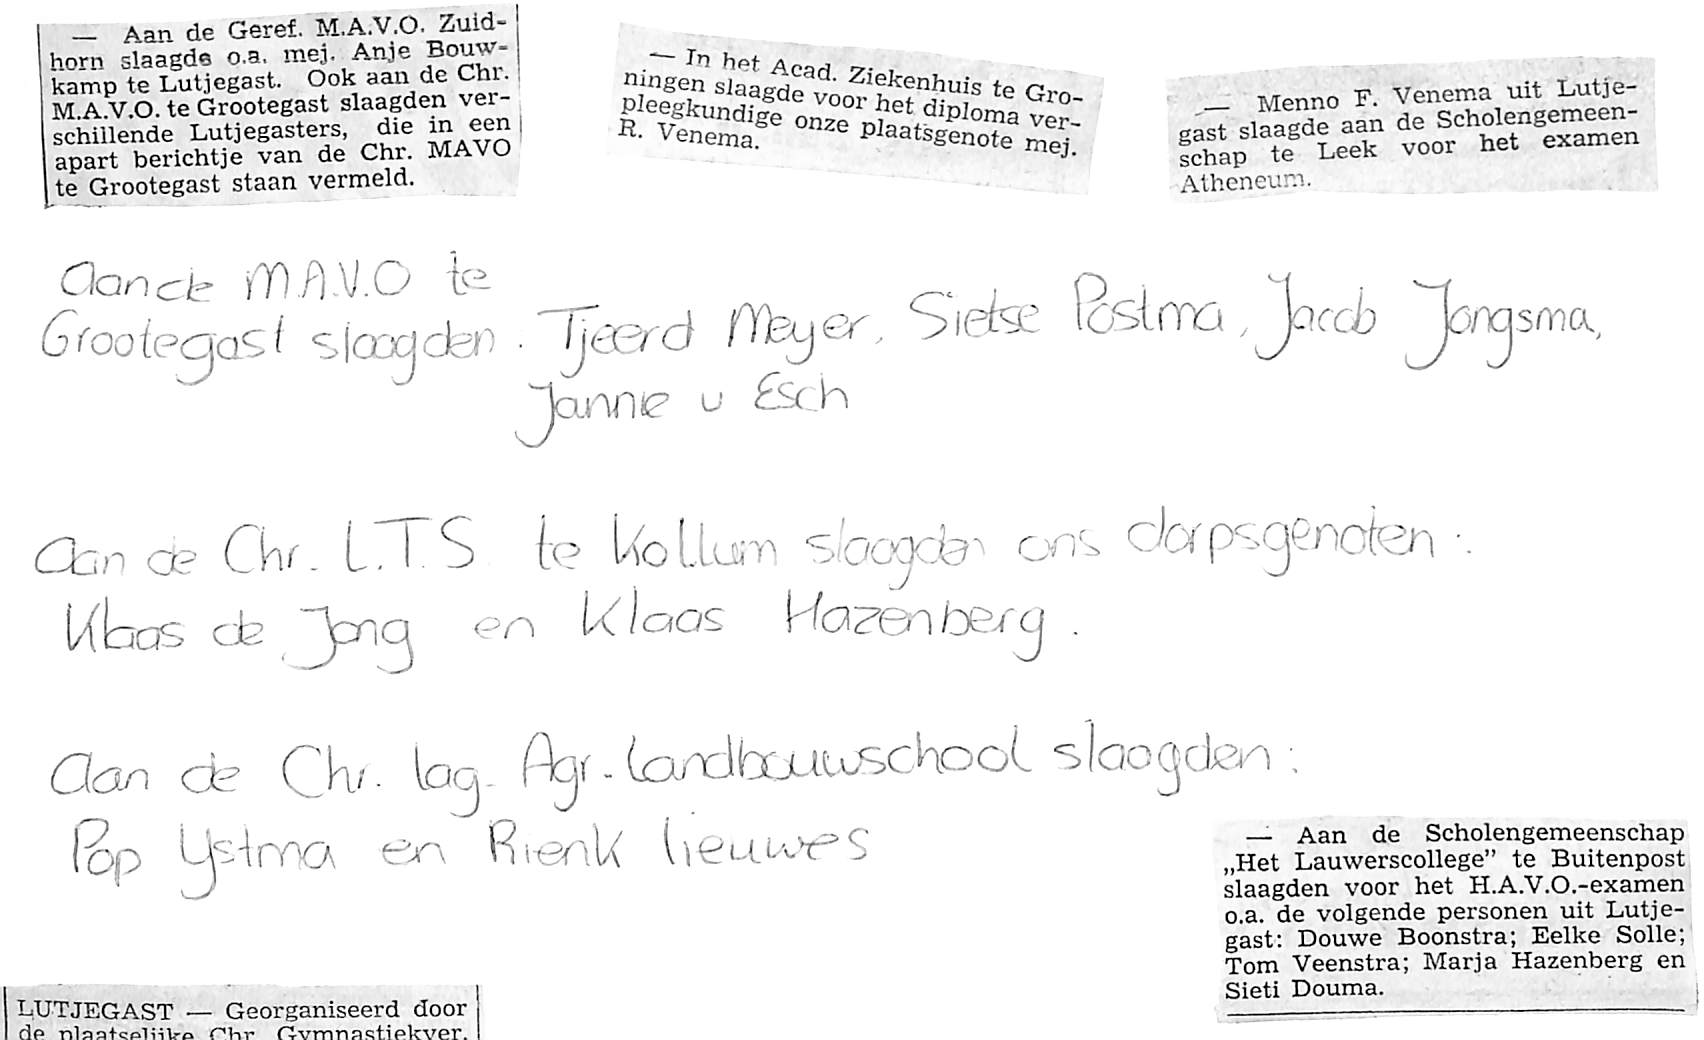 — Aan de Geref. M.A.V.O. Zuid-
horn slaagde o.a. mej. Anje Bouw-
kamp te Lutjegast. Ook aan de Chr.
M.A.V.O. te Grootegast slaagden ver-
schillende Lutjegasters, die in een
apart berichtje van de Chr. MAVO
te Grootegast staan vermeld.
— In het Acad. Ziekenhuis te Gro-
ningen slaagde voor het diploma ver-
pleegkundige onze plaatsgenote mej.
R. Venema.
— Menno F. Venema uit Lutje-
gast slaagde aan de Scholengemeen-
schap te Leek voor het examen
Atheneum.
Aan de M.A.V.O te
Grootegast slaagden : Tjeerd Meyer, Sietse Postma, Jacob Jongsma,
Jannie v Esch
Aan de Chr. L.T.S. te Kollum slaagden ons dorpsgenoten :
Klaas de Jong en Klaas Hazenberg.
Aan de Chr. lag. Agr. landbouwschool slaagden :
Pop Ystma en Rienk lieuwes
— Aan de Scholengemeenschap
„Het Lauwerscollege” te Buitenpost
slaagden voor het H.A.V.O.-examen
o.a. de volgende personen uit Lutje-
gast: Douwe Boonstra; Eelke Solle;
Tom Veenstra; Marja Hazenberg en
Sieti Douma.
LUTJEGAST — Georganiseerd door
de plaatselijke Chr. Gymnastiekver.